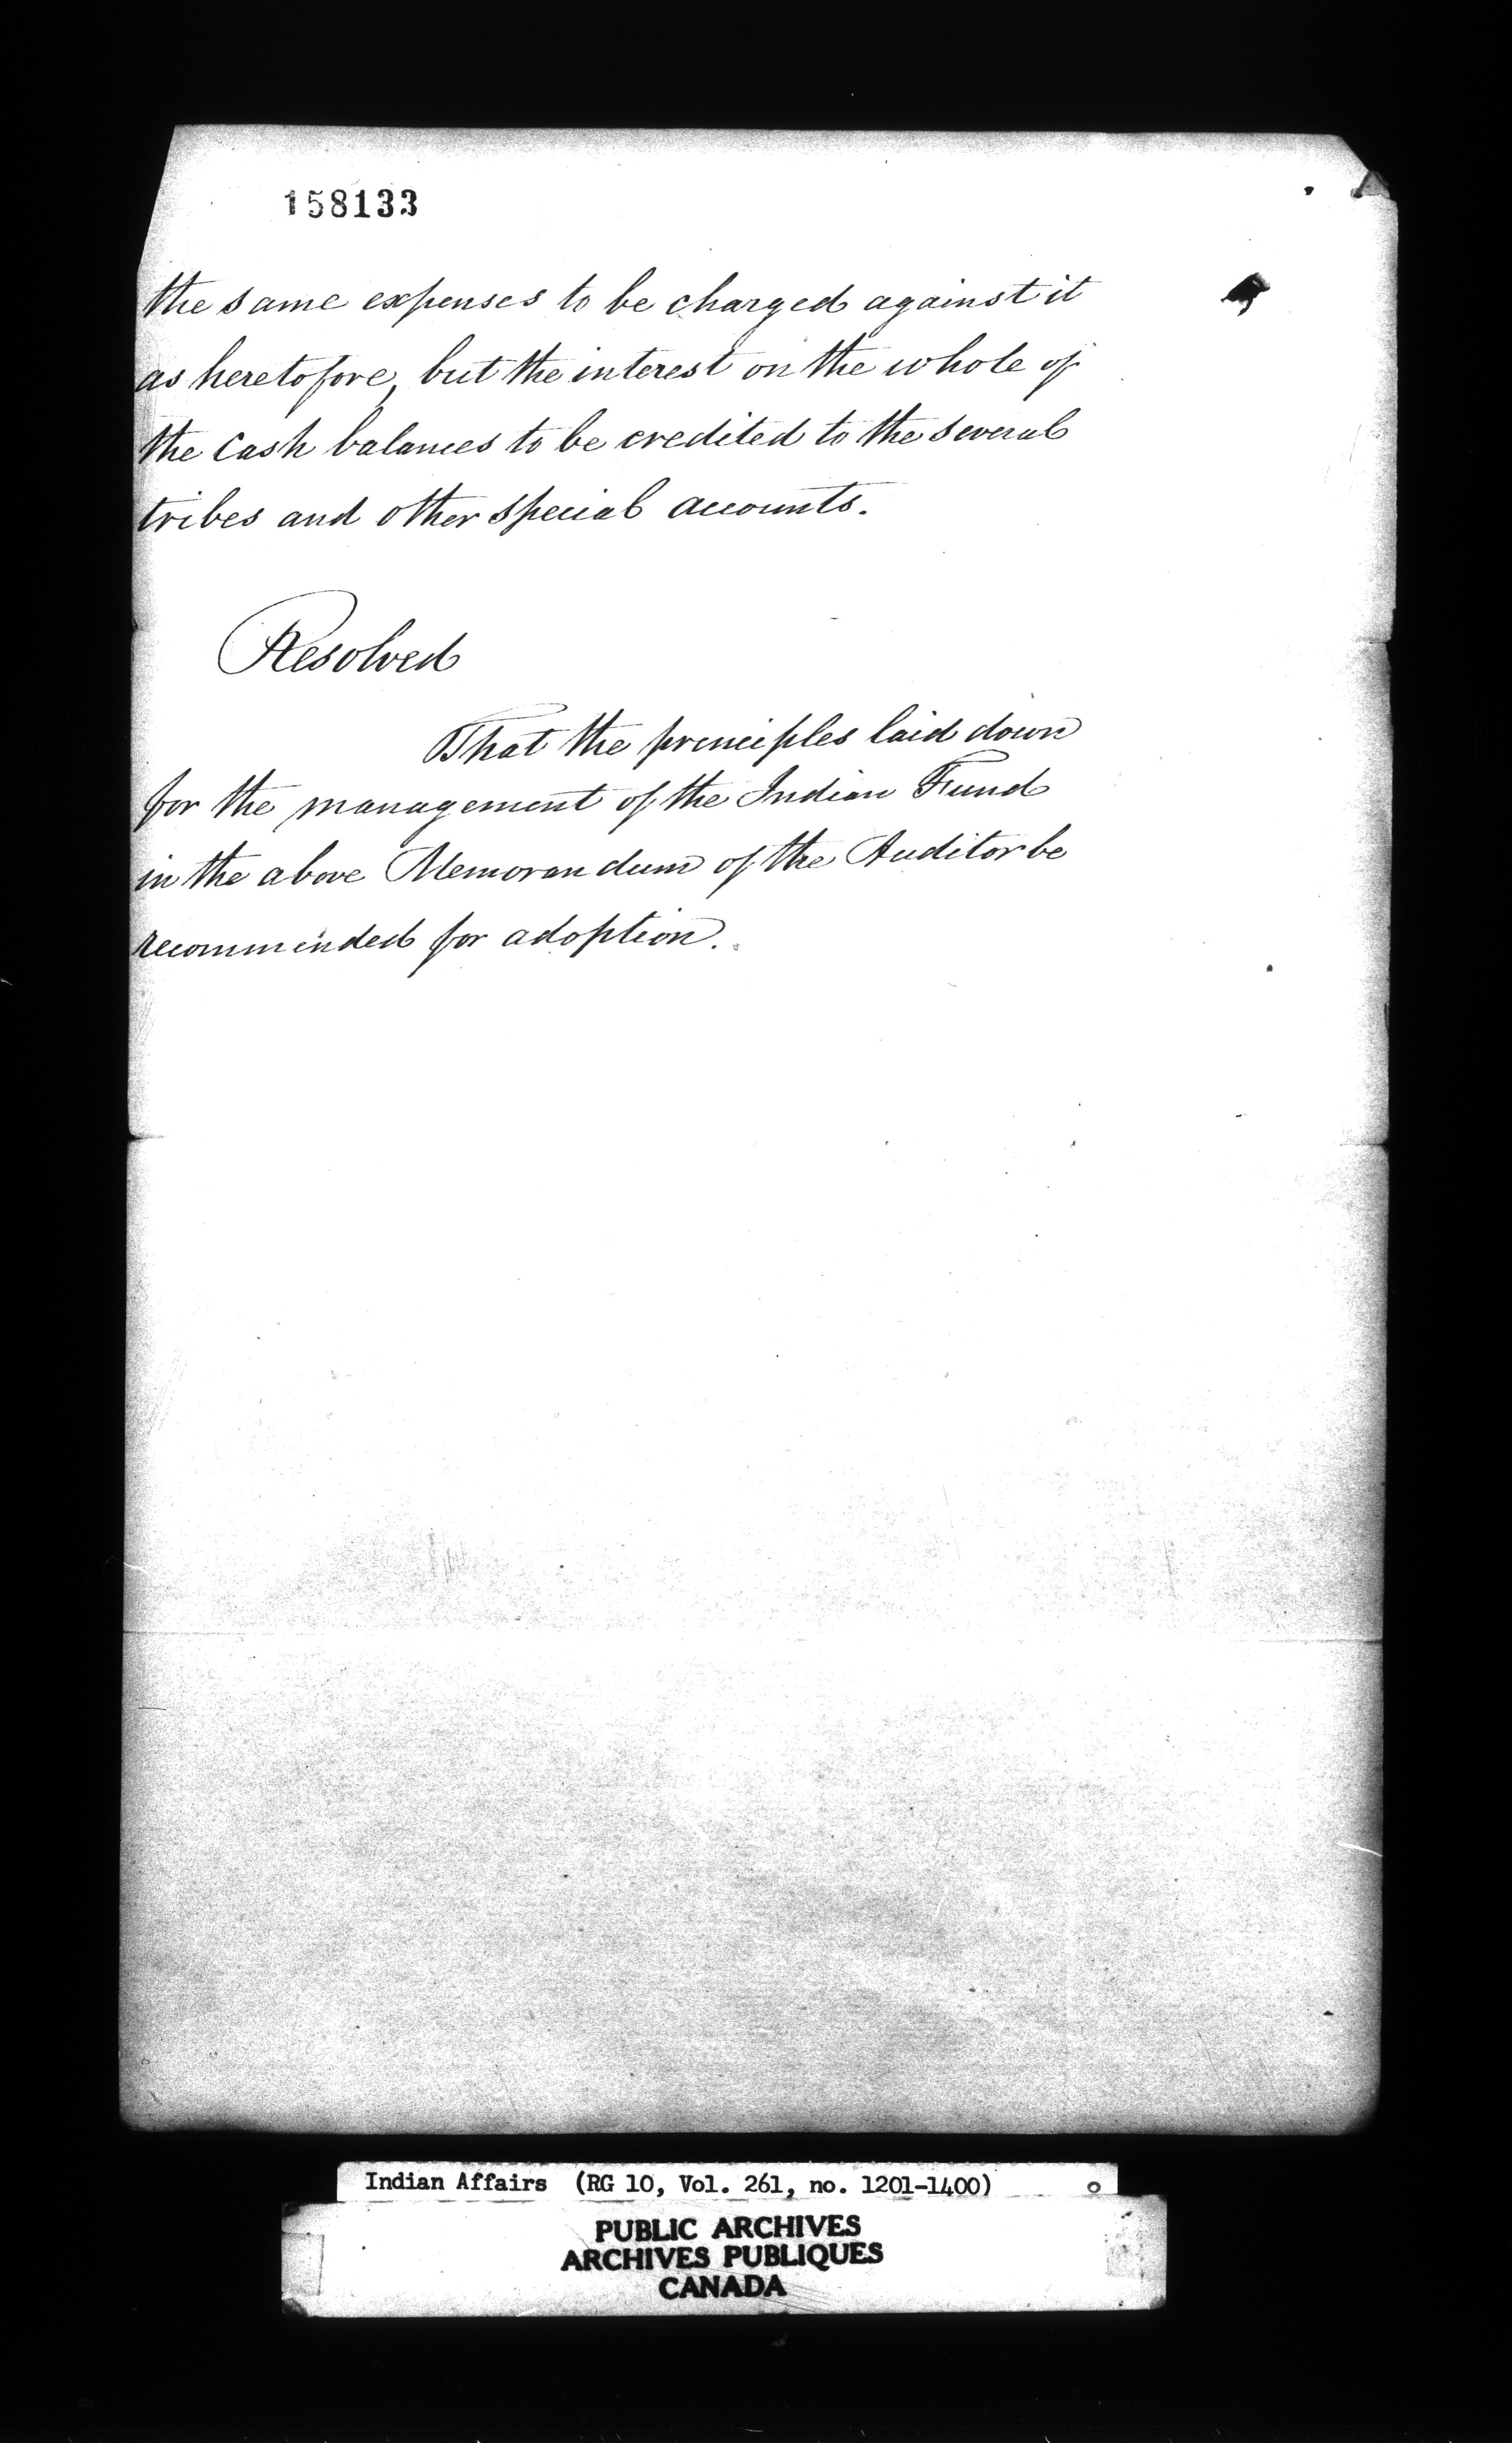 158133
the same expenses to be charged against it
as heretofore, but the interest on the whole of
the Cash balances to be credited to the several
tribes and other special accounts.
Resolved
That the principles laid down
for the management of the Indian Fund
in the above Memorandum of the Auditor be
recommended for adoption.
Indian Affairs (RG 10, Vol. 261, no. 1201-1400)
PUBLIC ARCHIVES
ARCHIVES PUBLIQUES
CANADA